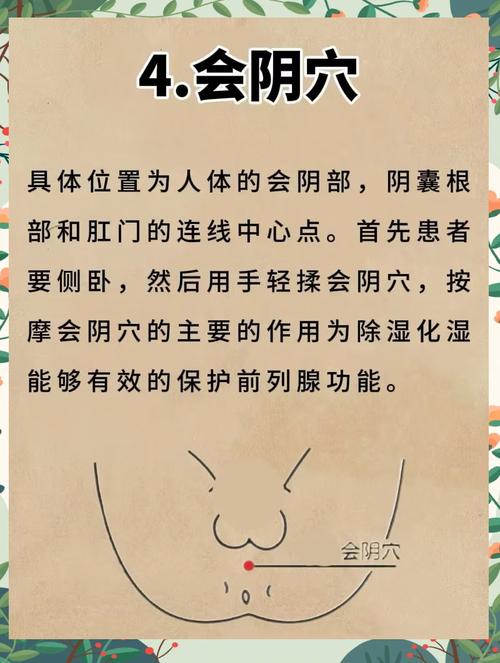 4.会阴穴
具体位置为人体的会阴部，阴囊根
部和肛门的连线中心点。首先患者
要侧卧，然后用手轻揉会阴穴，按
摩会阴穴的主要的作用为除湿化湿
能够有效的保护前列腺功能。
会阴穴